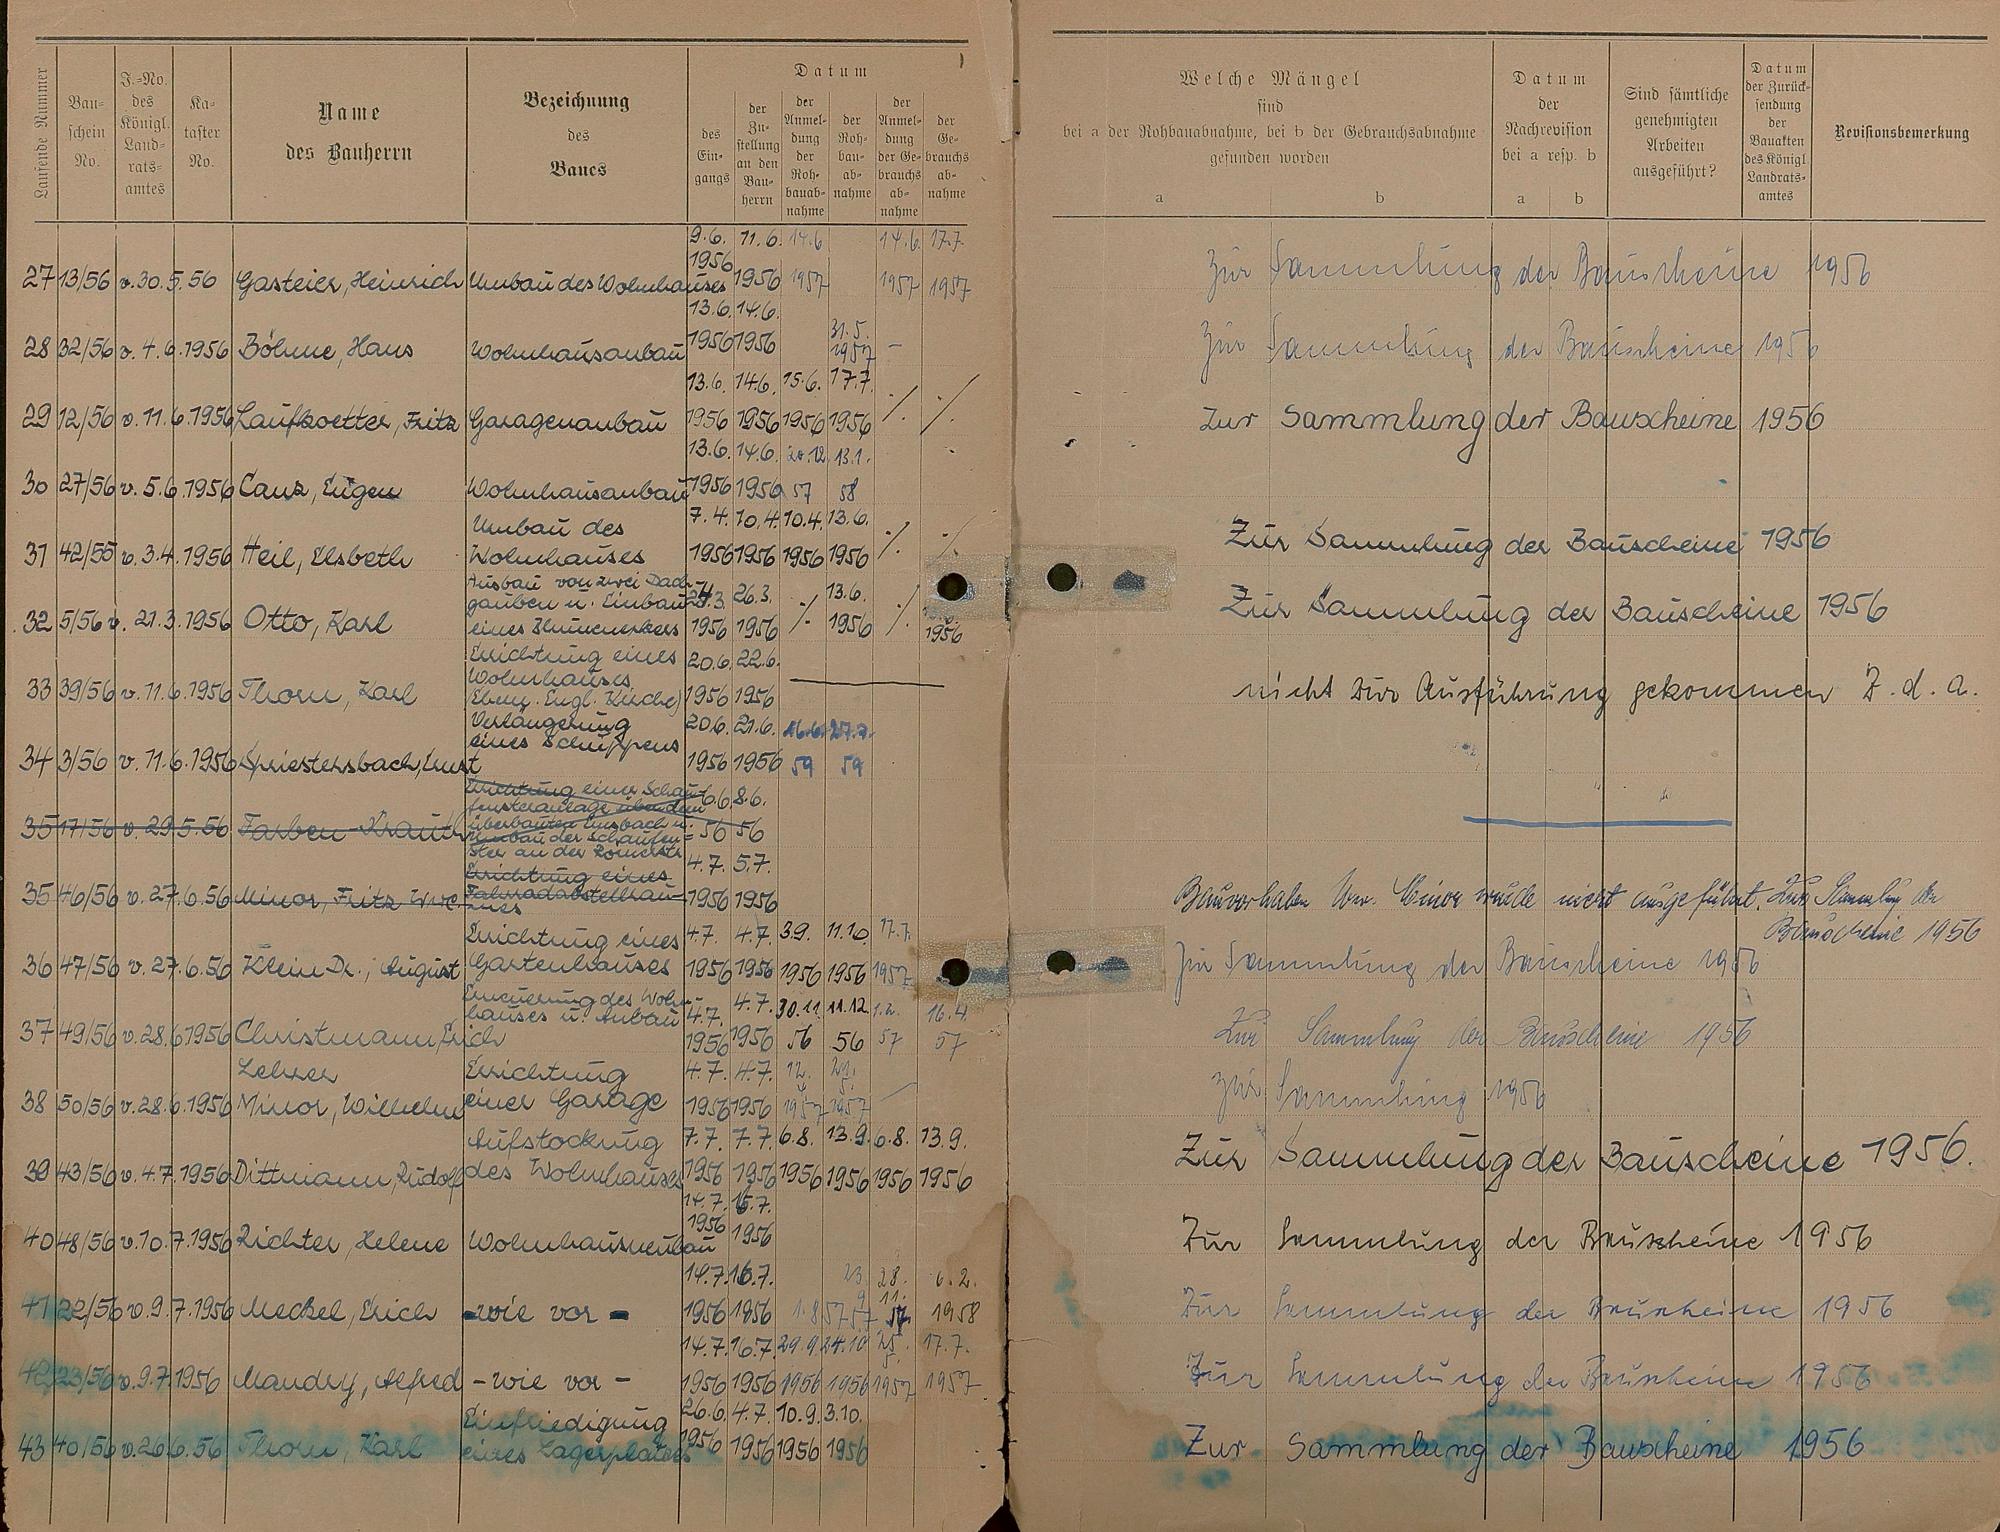 Laufende Nummer
Bau-
schein
No.
J.-No.
des
Königl.
Land-
rats-
amtes
Ka-
taster
No.
Name
des Bauherrn
Bezeichnung
des
Baues
Datum
des
Ein-
gangs
der
Zu-
stellung
an den
Bau-
herrn
der
Anmel-
dung
der
Roh-
bauab-
nahme
der
Roh-
bau-
ab-
nahme
der
Anmel-
dung
der Ge-
brauchs
ab-
nahme
der
Ge-
brauchs
ab-
nahme
Welche Mängel
sind
bei a der Rohbauabnahme, bei b der Gebrauchsabnahme
gefunden worden
a b
Datum
der
Nachrevision
bei a resp. b
a b
Sind sämtliche
genehmigten
Arbeiten
ausgeführt?
Datum
der Zurück-
sendung
der
Bauakten
des Königl.
Landrats-
amtes
Revisionsbemerkung
9.6. 11.6. 14.6 14.6. 17.7.
1956
27 13/56 v. 30.5.56 Gasteier, Heinrich Umbau des Wohnhauses 1956 1957 1957 1957 Zur Sammlung der Bauscheine 1956
13.6. 14.6. 31.5.
28 32/56 v. 4.6.1956 Böhme, Hans Wohnhausanbau 1956 1956 1957 – Zur Sammlung der Bauscheine 1956
13.6. 14.6. 15.6. 17.7.
29 12/56 v. 11.6.1956 Laufkoetter, Fritz Garagenanbau 1956 1956 1956 1956 ./. ./. Zur Sammlung der Bauscheine 1956
13.6. 14.6. 20.12. 13.1.
30 27/56 v. 5.6.1956 Canz, Eugen Wohnhausanbau 1956 1956 57 58
Umbau des 7.4. 10.4. 10.4. 13.6.
31 42/55 v. 3.4.1956 Heil, Elsbeth Wohnhauses 1956 1956 1956 1956 ./. ./. Zur Sammlung der Bauscheine 1956
Ausbau von zwei Dach-
gauben u. Einbau 26.3. 13.6.
32 5/56 v. 21.3.1956 Otto, Karl eines Blumenerkers 1956 1956 ./. 1956 ./. 1956 Zur Sammlung der Bauscheine 1956
Errichtung eines 20.6. 22.6.
Wohnhauses
33 39/56 v. 11.6.1956 Thorn, Karl (Ehem. Engl. Kirche) 1956 1956 nicht zur Ausführung gekommen Z.d.a.
Verlängerung 20.6. 21.6. 16.6. 27.7.
eines Schuppens
34 3/56 v. 11.6.1956 Spriestersbach, Ernst 1956 1956 59 59
Errichtung einer Schau-
fensteranlage über dem 6.6. 8.6.
überbauten Emsbach u.
35 17/56 v. 29.5.56 Farben-Krauth Umbau der Schaufen- 56 56
ster an der Römerstr.
4.7. 5.7.
Errichtung eines
35 46/56 v. 27.6.56 Minor, Fritz Wwe. Fahrradabstellrau- 1956 1956 Bauvorhaben Ww. Minor wurde nicht ausgeführt. Zur Sammlung der
mes Bauscheine 1956
Errichtung eines 4.7. 4.7. 3.9. 11.10. 17.7.
36 47/56 v. 27.6.56 Klein Dr., August Gartenhauses 1956 1956 1956 1956 1957 Zur Sammlung der Bauscheine 1956
Erneuerung des Wohn-
hauses u. Anbau 4.7. 4.7. 30.11. 11.12. 1.2. 16.4.
37 49/56 v. 28.6.1956 Christmann, Erich 1956 1956 56 56 57 57 Zur Sammlung der Bauscheine 1956
Lehrer Errichtung 4.7. 4.7. 12.
38 50/56 v. 28.6.1956 Minor, Wilhelm einer Garage 1956 1956 1957 1957 Zur Sammlung 1956
Aufstockung 7.7. 7.7. 6.8. 13.9. 6.8. 13.9.
39 43/56 v. 4.7.1956 Dittmann, Rudolf des Wohnhauses 1956 1956 1956 1956 1956 1956 Zur Sammlung der Bauscheine 1956.
14.7. 16.7.
40 48/56 v. 10.7.1956 Richter, Helene Wohnhausneubau 1956 1956 Zur Sammlung der Bauscheine 1956
14.7. 16.7. 23. 28. 6.2.
9 11.
41 22/56 v. 9.7.1956 Meckel, Erich - wie vor - 1956 1956 1.8 57 57 57 1958 Zur Sammlung der Bauscheine 1956
14.7. 16.7. 29.9. 24.10 25. 17.7.
42 23/56 v. 9.7.1956 Maudry, Alfred - wie vor - 1956 1956 1956 1956 1957 1957 Zur Sammlung der Bauscheine 1956
Einfriedigung 26.6. 4.7. 10.9. 3.10.
43 40/56 v. 26.6.56 Thorn, Karl eines Lagerplatzes 1956 1956 1956 1956 Zur Sammlung der Bauscheine 1956